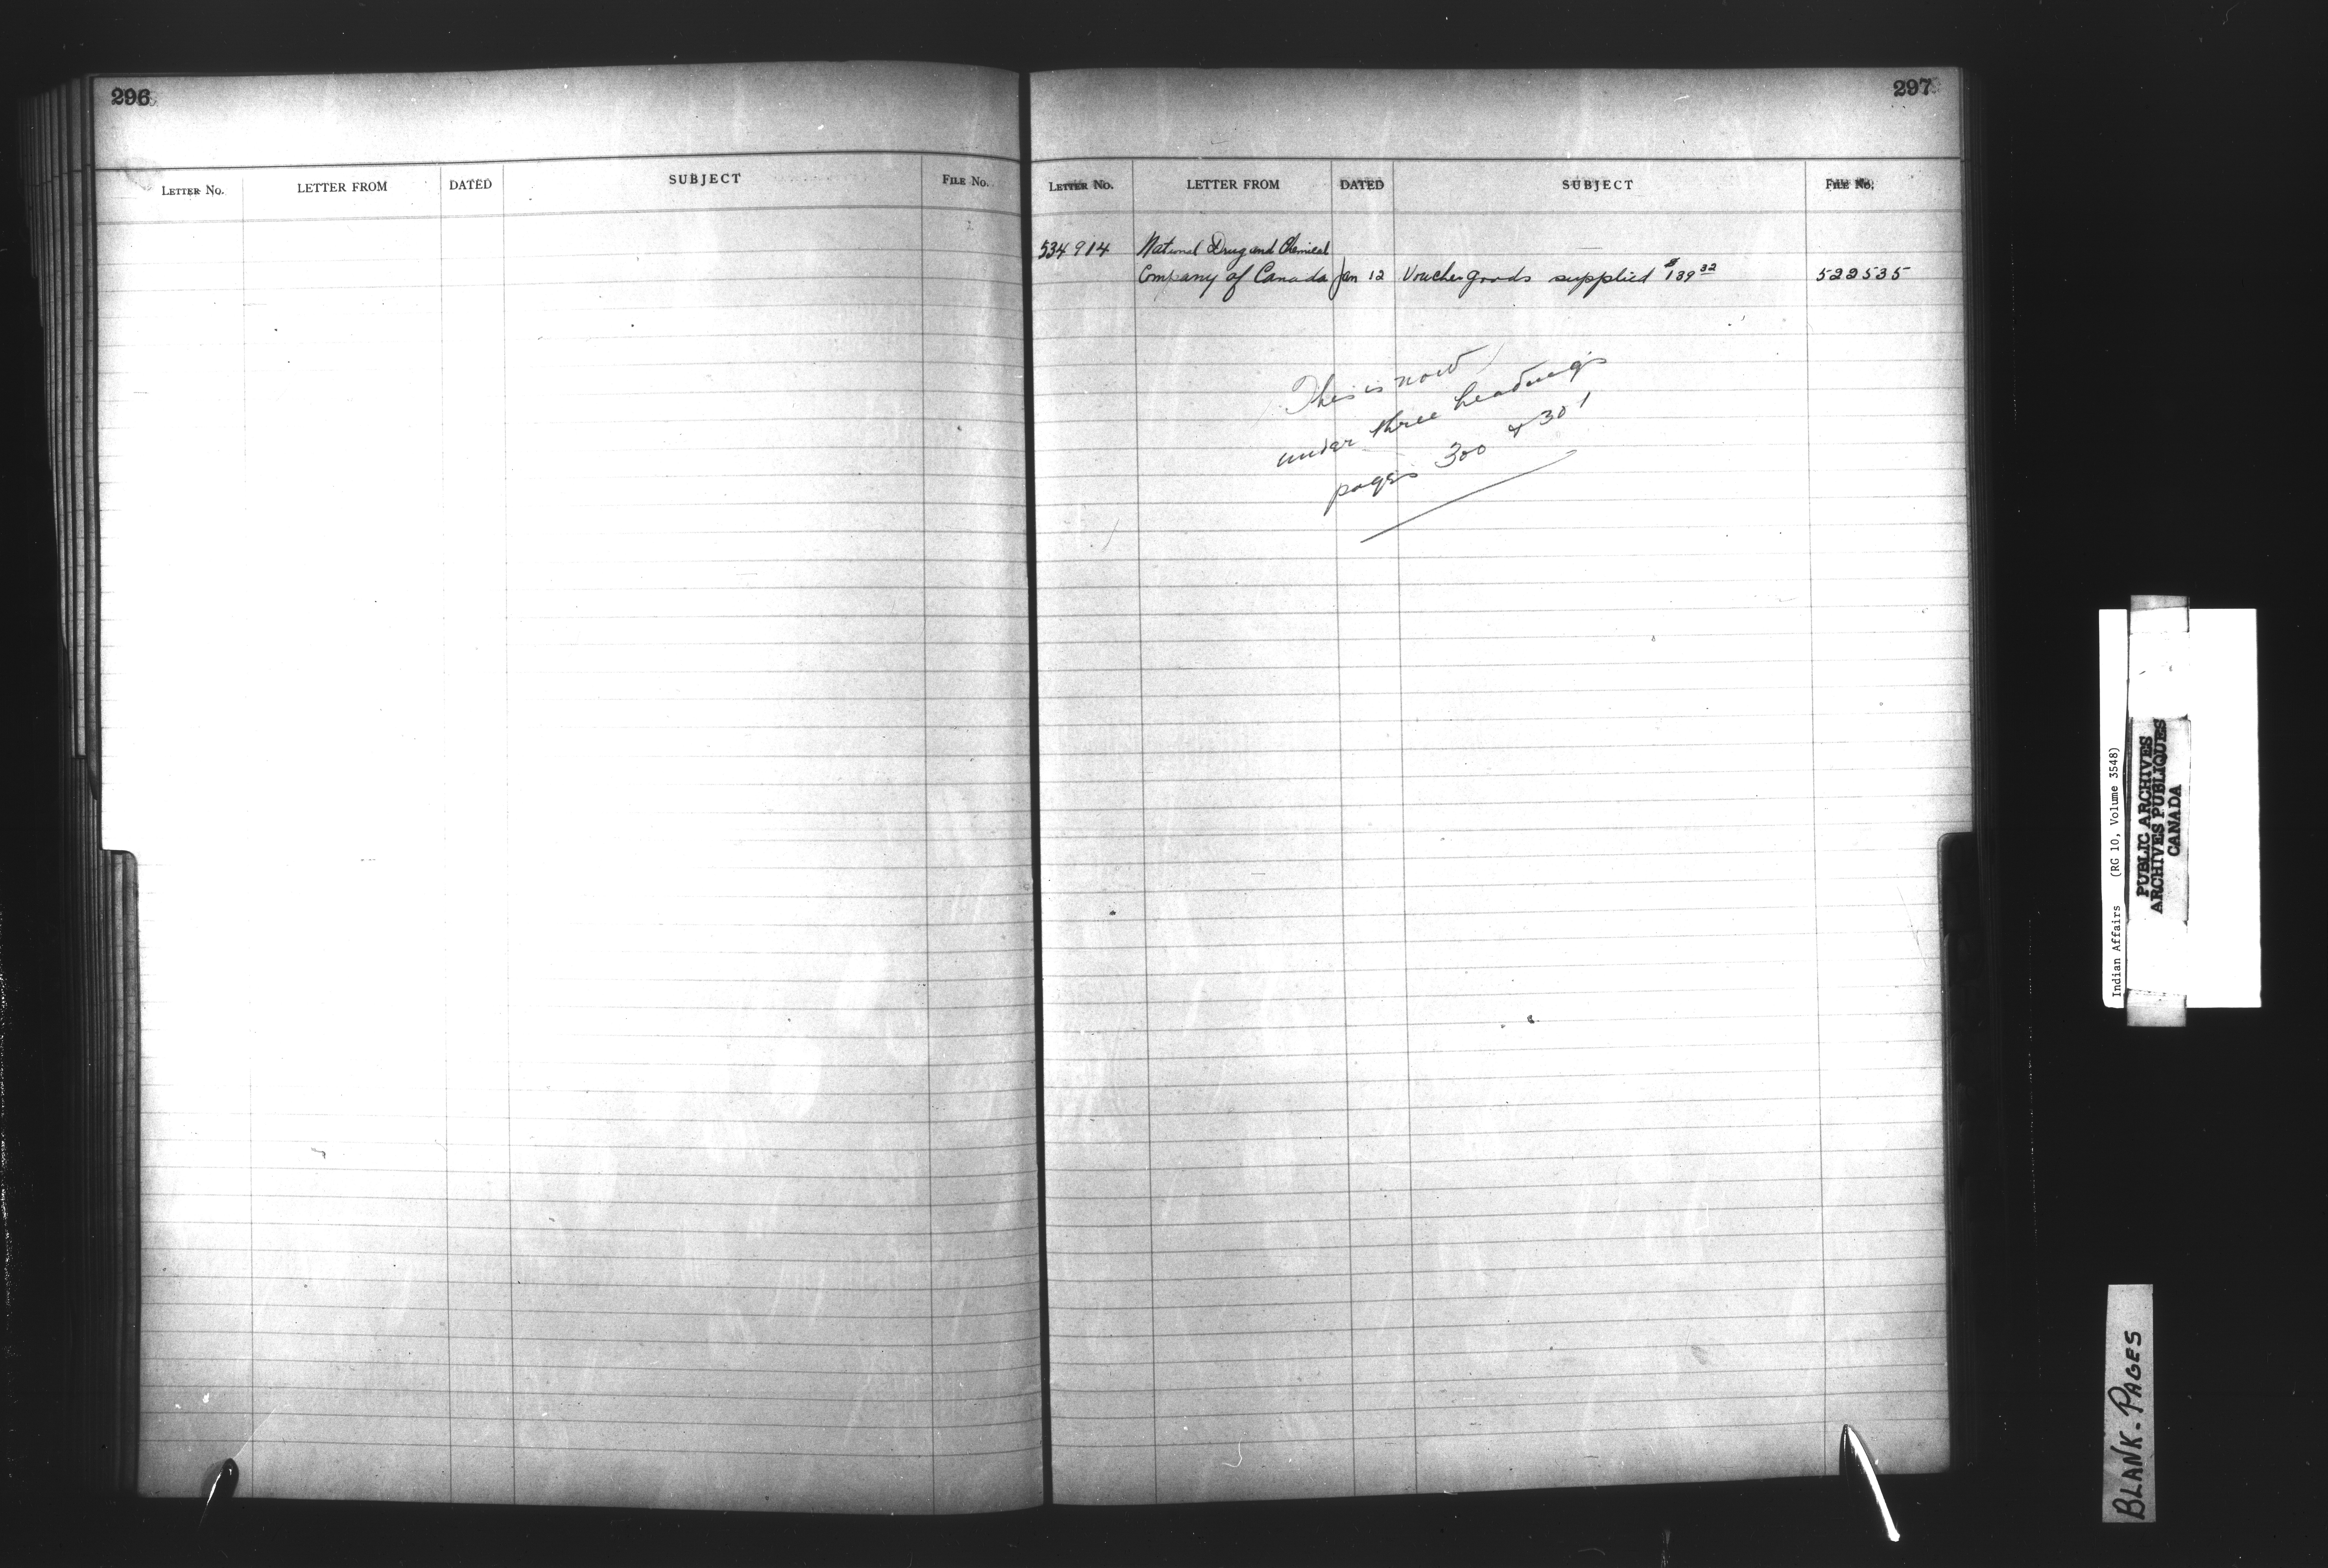 296
LETTER No. LETTER FROM DATED SUBJECT FILE No.
297
LETTER No. LETTER FROM DATED SUBJECT FILE No.
534914 National Drug and Chemical
Company of Canada Jan 12 Voucher goods supplied $139 32 522535
This is now
under three headings
pages 300 & 301
Indian Affairs (RG 10, Volume 3548)
PUBLIC ARCHIVES
ARCHIVES PUBLIQUES
CANADA
BLANK-PAGES